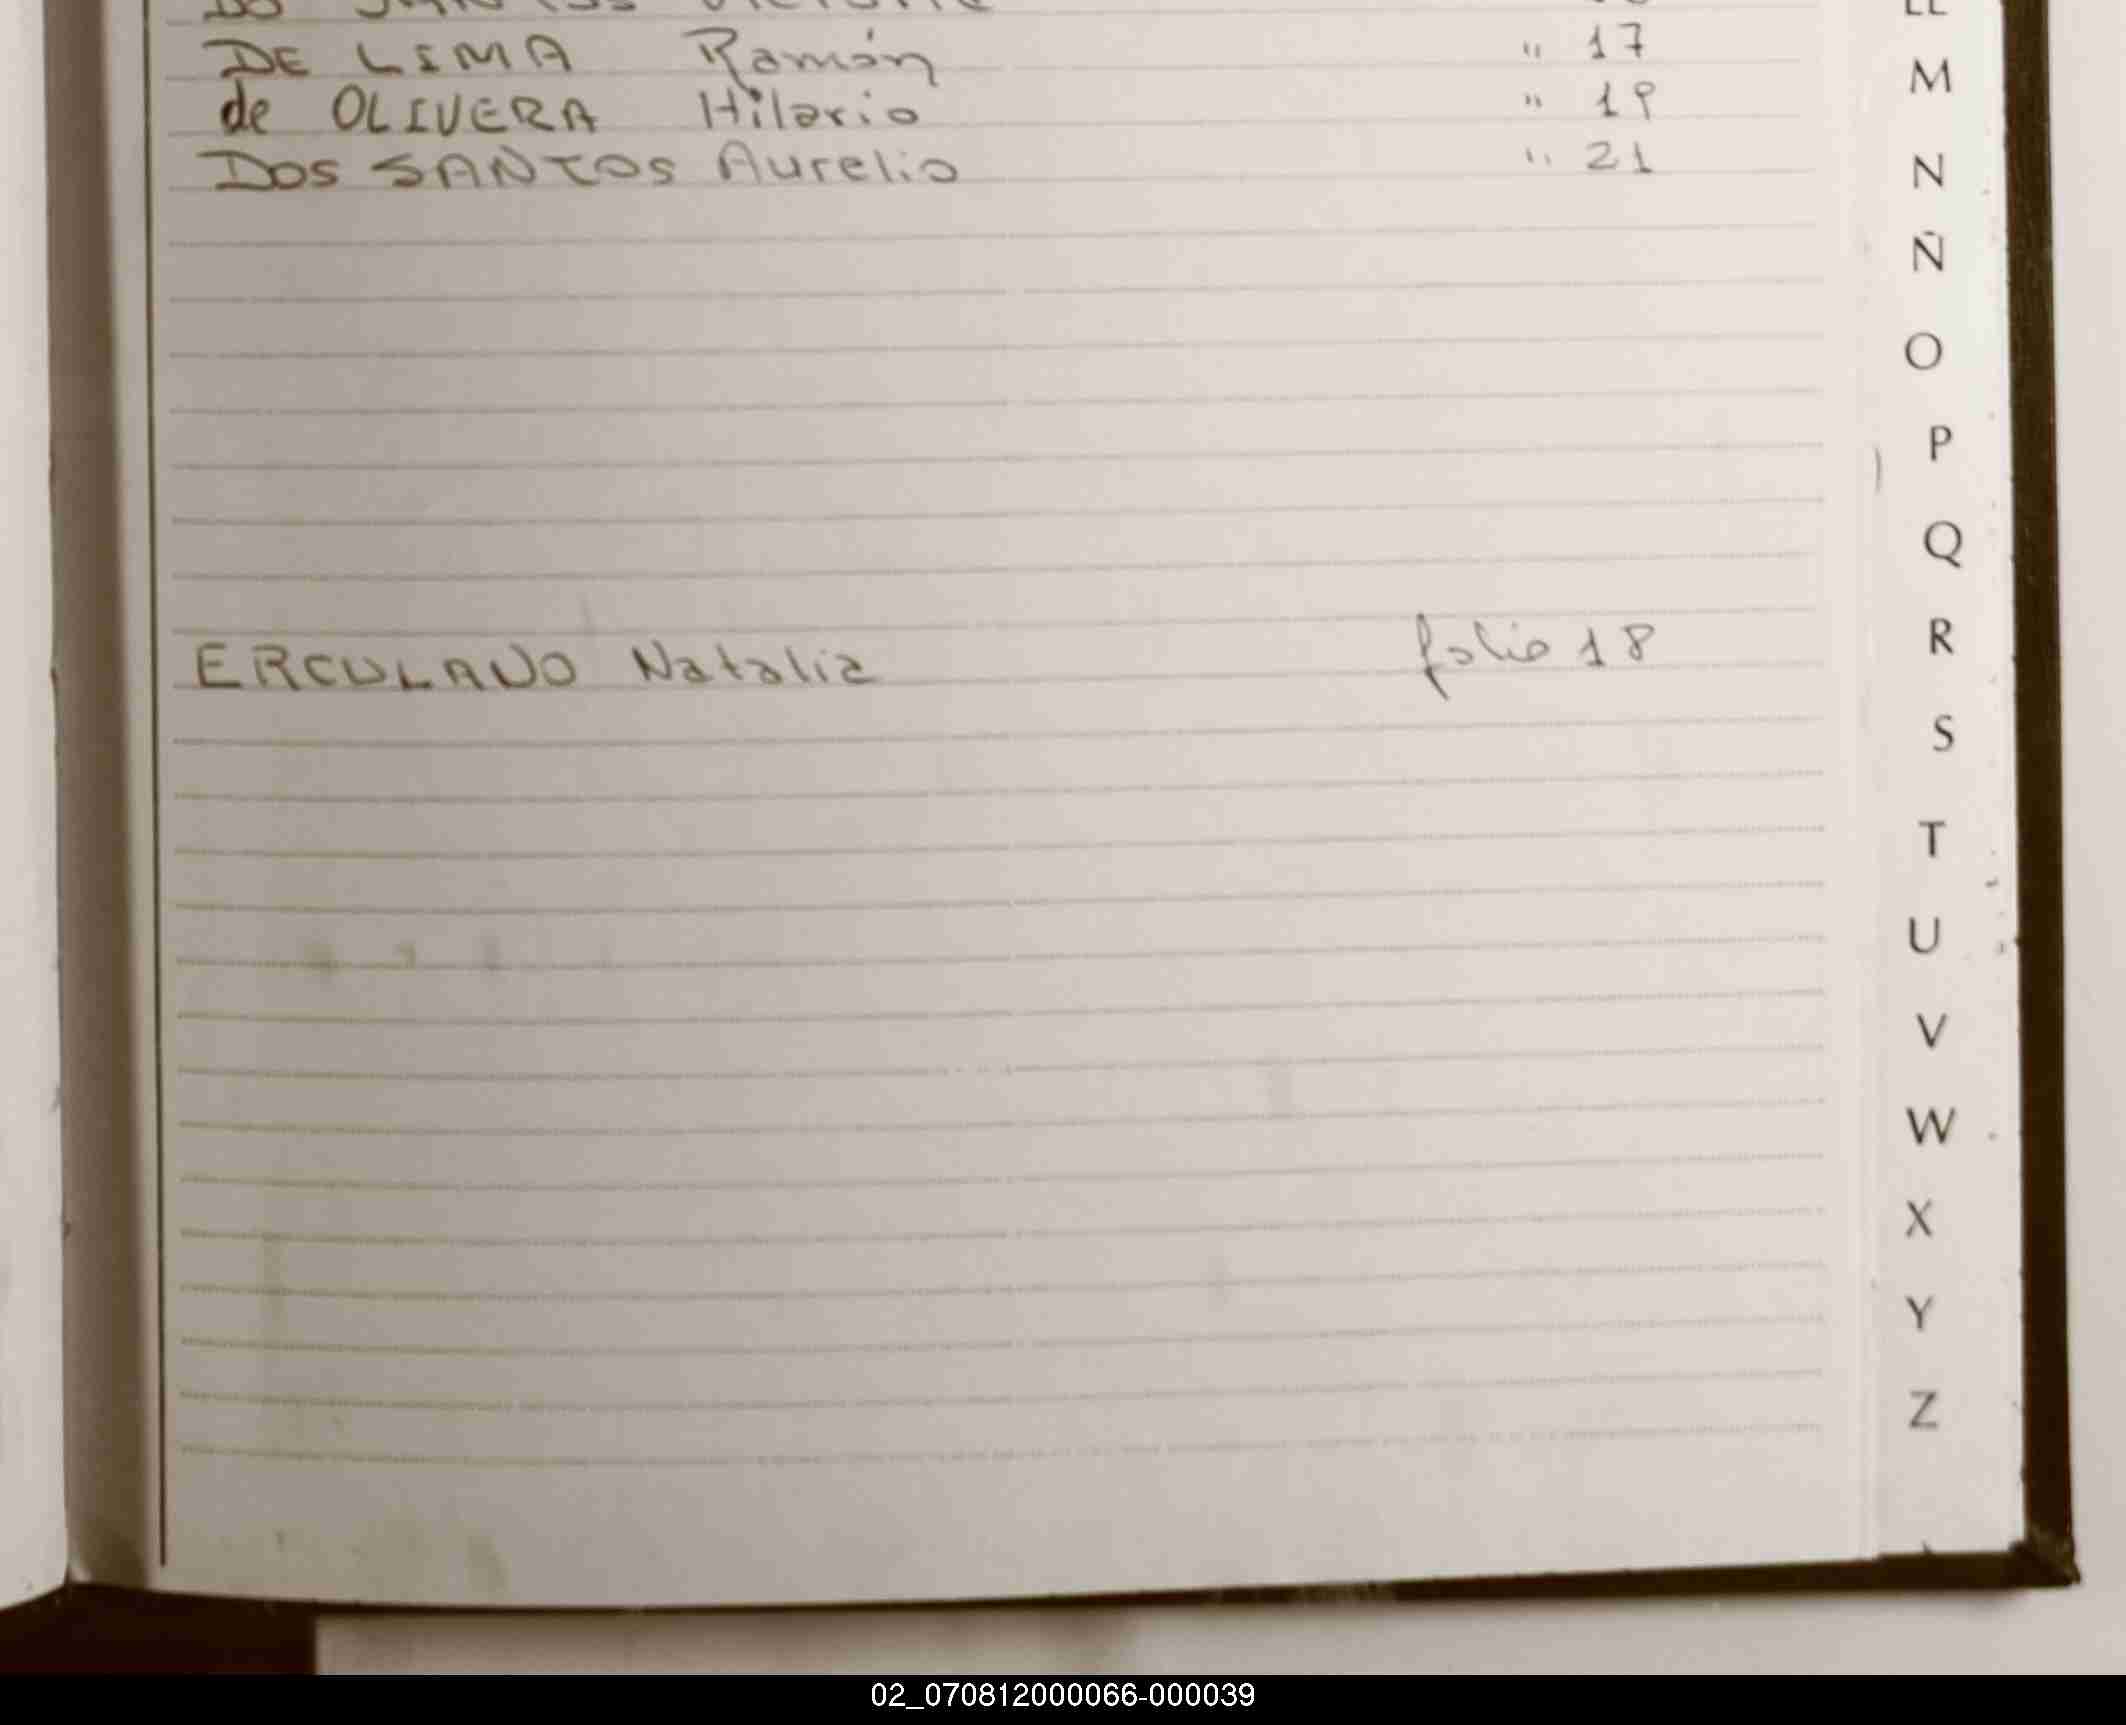 DE LIMA Ramón " 17
de OLIVERA Hilario " 19
DOS SANTOS Aurelio " 21
ERCULANO Natalia folio 18
LL
M
N
Ñ
O
P
Q
R
S
T
U
V
W
X
Y
Z
02_070812000066-000039